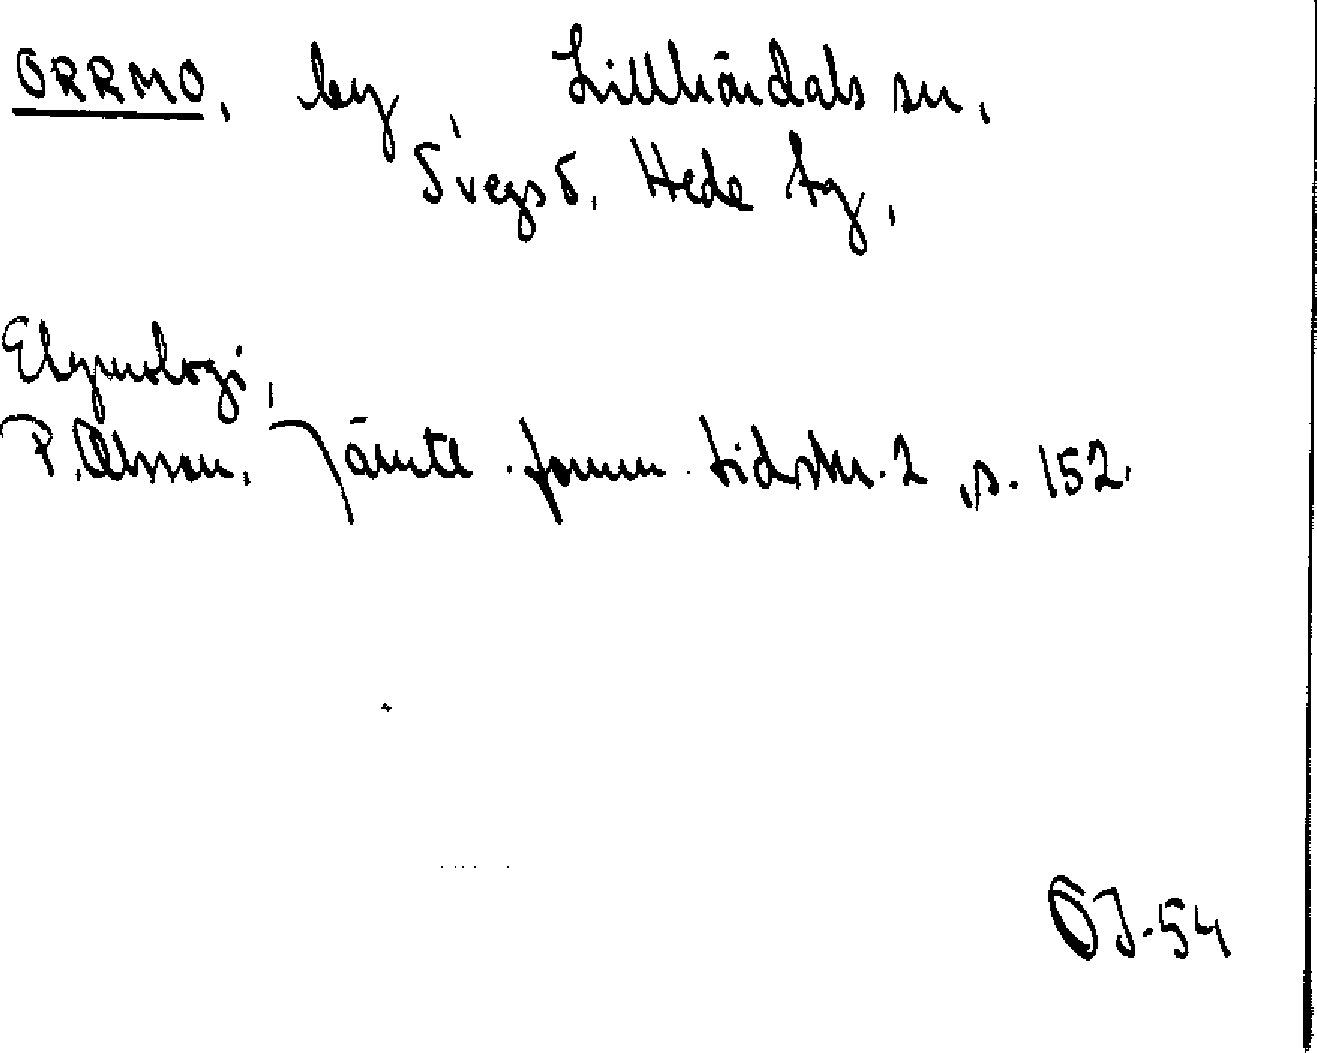 ORRMO, by, Lillhärdals sn,
Svegs d. Hede tg,
Etymologi,
P. Olsson, Jämtl. fornm. tidskr. 2, s. 152.
ÖJ-54